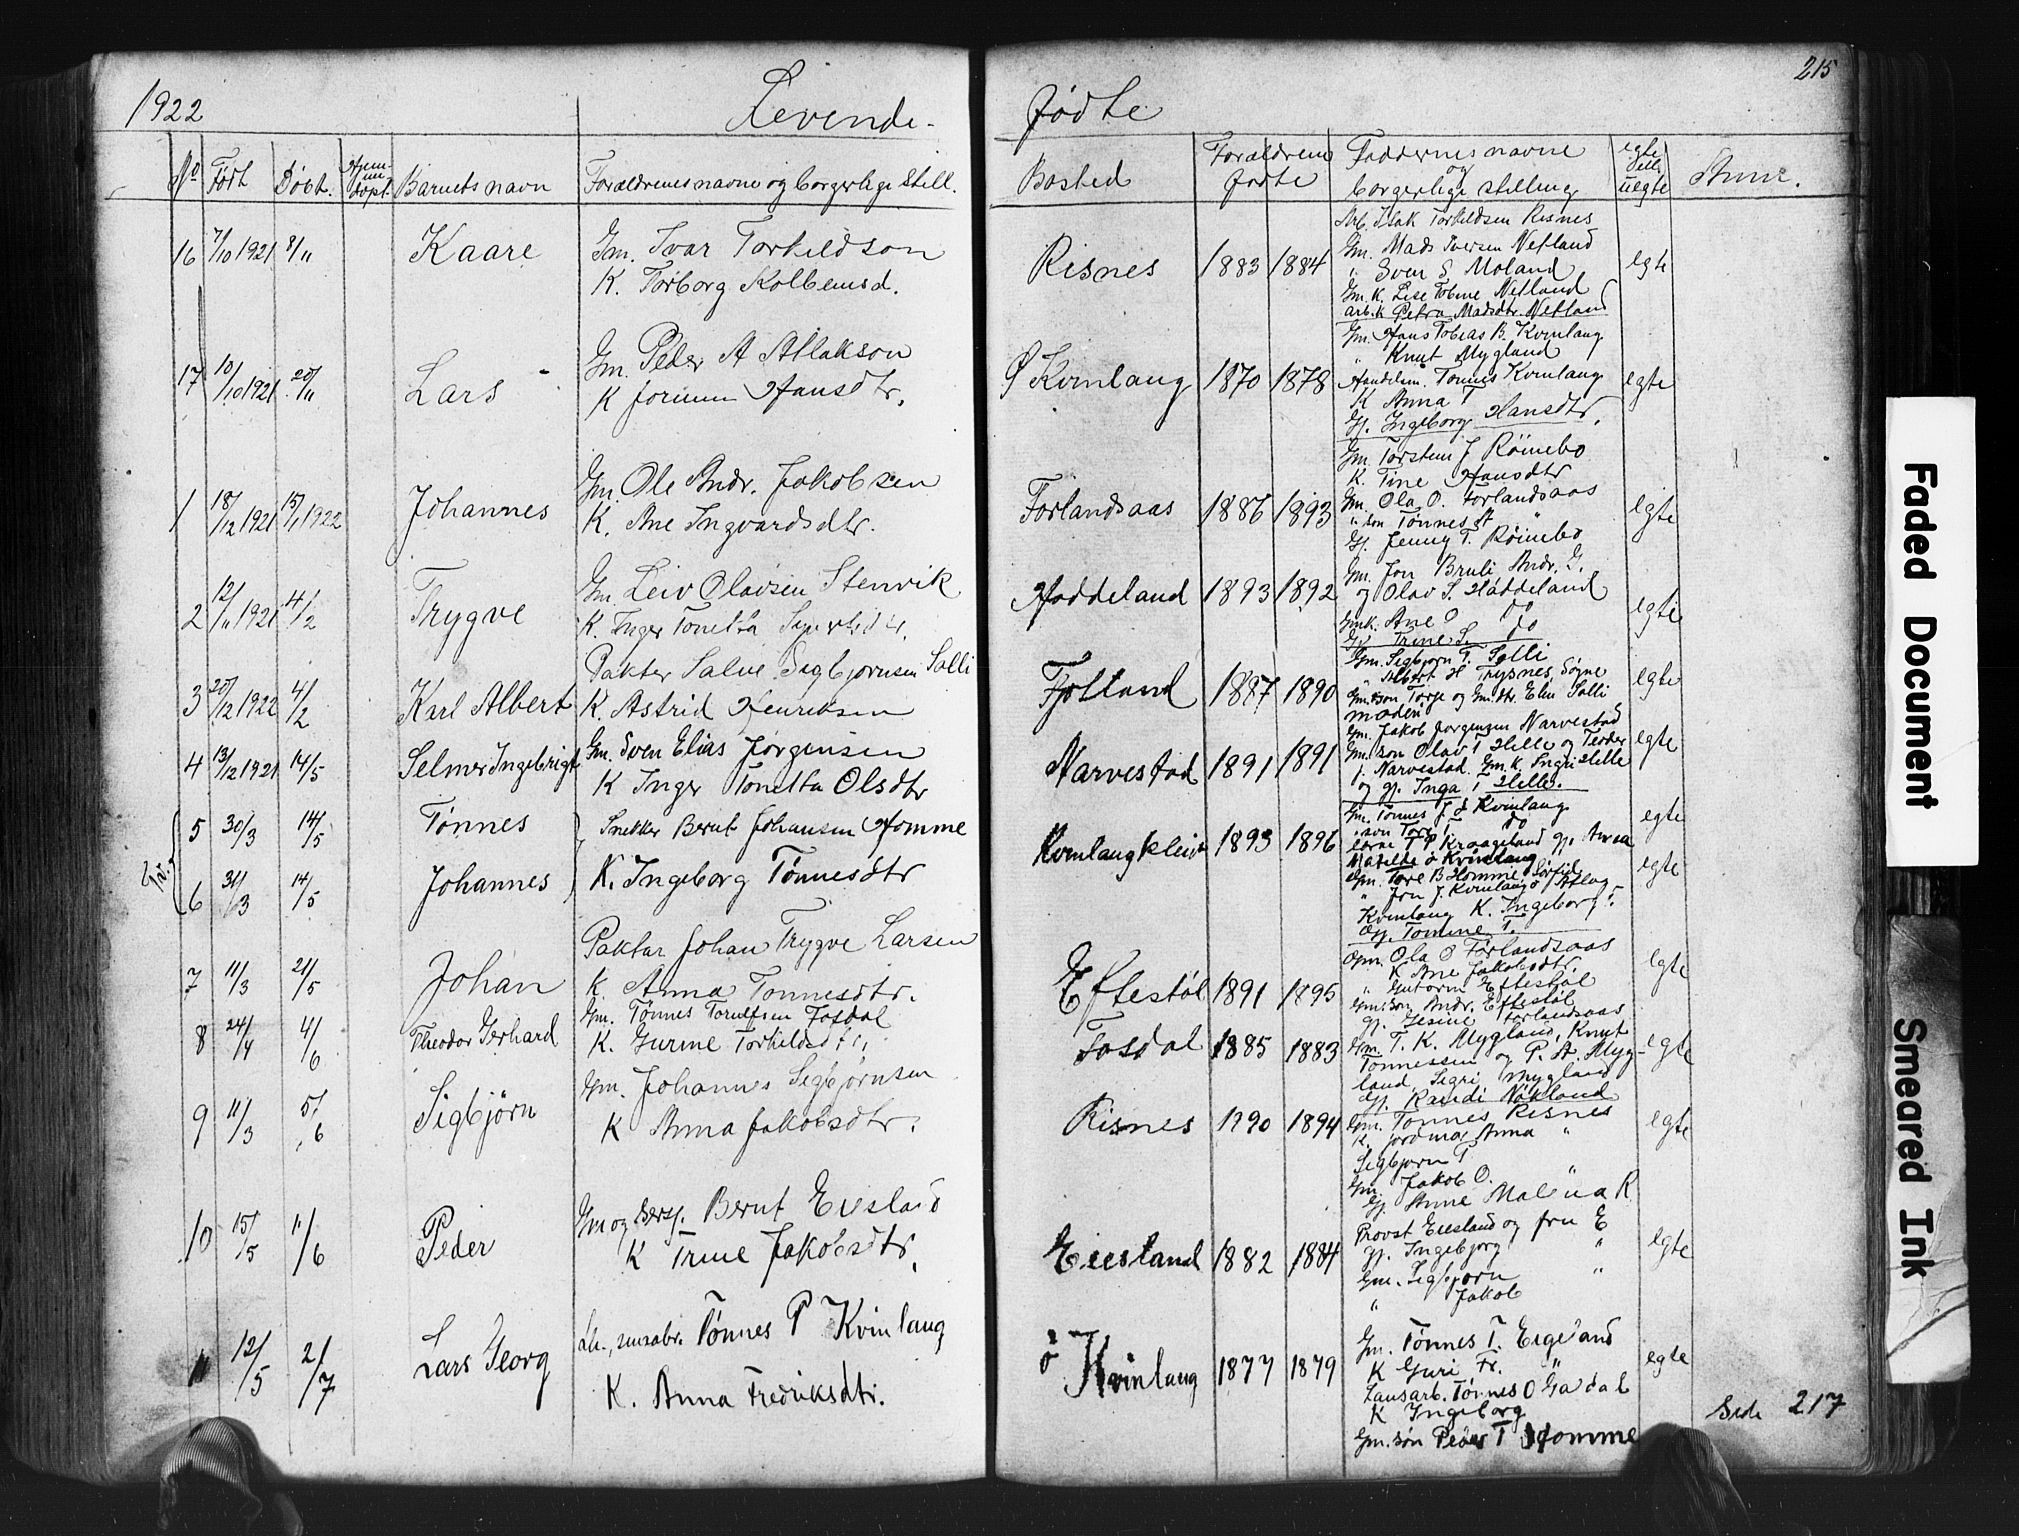 1922 Levende-
No Født Døbt. Hjem- døpt. Barnets navn Forældrenes navne og borgerlige Still.
16 7/10 1921 8/11 Kaare Gm. Ivar Torkildson
K. Torborg Kolbensd.
17 10/10 1921 20/11 Lars Gm. Peder A Atlakson
K Jorunn Hansdtr.
1 18/12 1921 15/1 1922 Johannes Gm. Ole Andr. Jakobsen
K. Ane Ingvardsdtr.
2 12/11 1921 4/2 Trygve Gm. Leiv Olavsen Stenvik
K. Inger Tonetta
3 20/12 1922 4/2 Karl Albert Pakter Salve Sigbjørnsen Solli
K. Astrid Henriksen
4 13/12 1921 14/5 Selmer Ingebrigt Gm. Sven Elias Jørgensen
K Inger Tonetta Olsdtr
5 30/3 14/5 Tønnes Snekker Bernt Johansen Homme
Tv.
6 31/3 14/5 Johannes K. Ingeborg Tønnesdtr
7 11/3 21/5 Johan Paktar Johan Trygve Larsen
K. Anna Tonnesdtr.
8 24/4 4/6 Theodor Gerhard Gm. Tønnes Fosdal
K. Gurine Torkildsdtr.
9 11/3 5/6 Sigbjörn Gm. Johannes Sigbjørnsen
K Anna Jakobsdtr.
10 15/5 11/6 Peder Gm og Bernt Eiesland
K Trine Jakobsdtr.
11 12/5 2/7 Lars Georg Tønnes P Kvinlaug
K. Anna Fredriksdtr.
215
fødte
Bosted Forældrenes fødte Faddernes navne og borgerlige stilling egte Anm.
eller
uegte
Arb. Isak Torkildsen Risnes
Risnes 1883 1884 Gm. Mads Iversen Netland egte
" Sven S Moland
Gm. K. Lise Tobine Netland
arb. k Petra Madsdtr. Netland
Gm. Hans Tobias B. Kvinlaug
" Knut Mygland
Ø Kvinlaug 1870 1878 Handelsm. Tønnes Kvinlaug egte
K Anna T
Gj. Ingeborg Hansdtr.
Gm. Torstein J Röinebo
K. Tine Hansdtr
Førlandsaas 1886 1893 Gm. Ola O. Førlandsaas egte
" søn Tønnes A "
Gj. Jenny T. Röinebo
Gm. Jon Bruli Andr. G.
Haddeland 1893 1892 og Olav S. Haddeland egte
Gmk. Ane O do
Gj Trine S. do
Gm. Sigbjørn T. Solli
Fjotland 1887 1890 " Albert H Trysnes, Søgne egte
Gm.søn Torje og Gm.dtr. Elin Solli
moderen
Gm. Jakob Jørgensen Narvestad
Narvestad 1891 1891 Gm. søn Olav T Helle og Teodor egte
J. Narvestad. Gm. K. Ingri Helle
og gj. Inga T Helle.
Gm. Tønnes J ø Kvinlaug
Kvinlaugkleiv 1893 1896 " søn Tore T do egte
T P Kraageland gj. Anna
Matilde ø Kvinlaug
Gm. Tore B Homme, egte
" Jon J. Kvinlaug ø Atlag
Kvinlaug K. Ingeborg T.
Gj. Tomine T.
Gm. Ola O Førlandsaas
Eftestøl 1891 1895 K Ane Jakobsdtr. egte
" Gutorm Eftestøl
Gm.søn Andr. Eftestøl
gj. Gesine Førlandsaas
Fosdal 1885 1883 Gm. T. K. Mygland, Knut egte
Tønnessen og P. A. Myg-
land, Sigri Mygland
Gj. Randi Nökland
Risnes 1890 1894 Gm. Tonnes Risnes egte
K. Anna "
Sigbjørn T
Gm. Jakob O.
Gj. Anne Malena R
Provst Eiesland og fru E
Eiesland 1882 1884 gj. Ingebjorg " egte
Gm. Sigbjørn "
" Jakob
Gm. Tønnes T. Eigeland
ø Kvinlaug 1877 1879 K Guri Fr. " egte
Tønnes O Gadal
K Ingeborg
Gm. søn Peder T Homme
Side 217
Faded Document
Smeared Ink